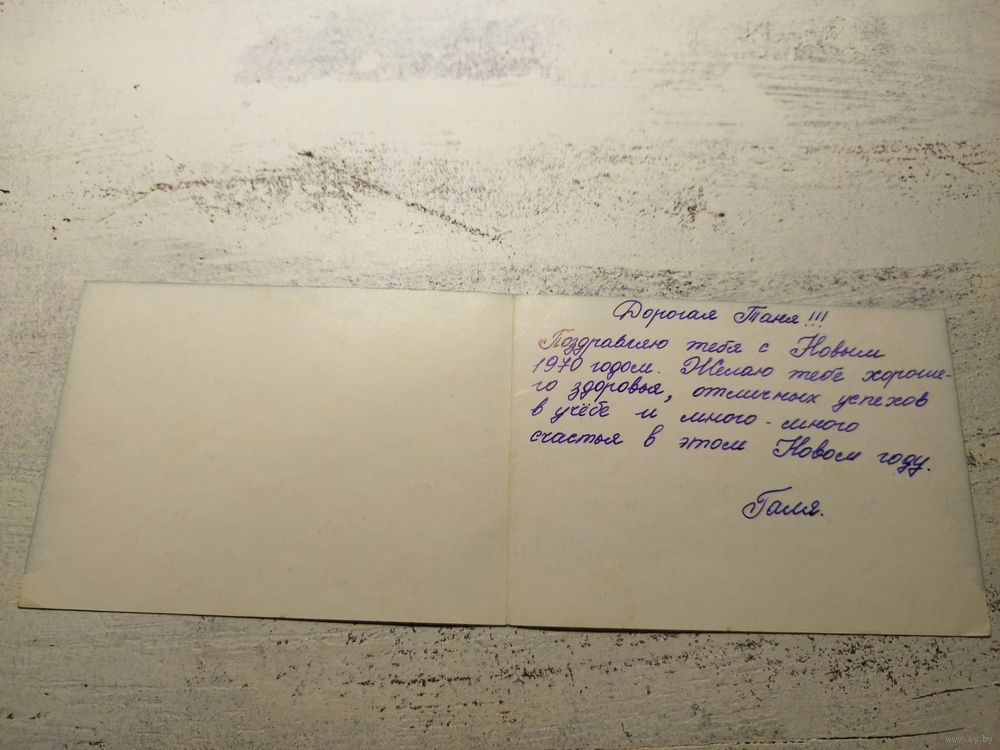 Дорогая Таня!!!
Поздравляю тебя с Новым
1970 годом. Желаю тебе хороше-
го здоровья, отличных успехов
в учёбе и много-много
счастья в этом Новом году.
Галя.
www.ay.by